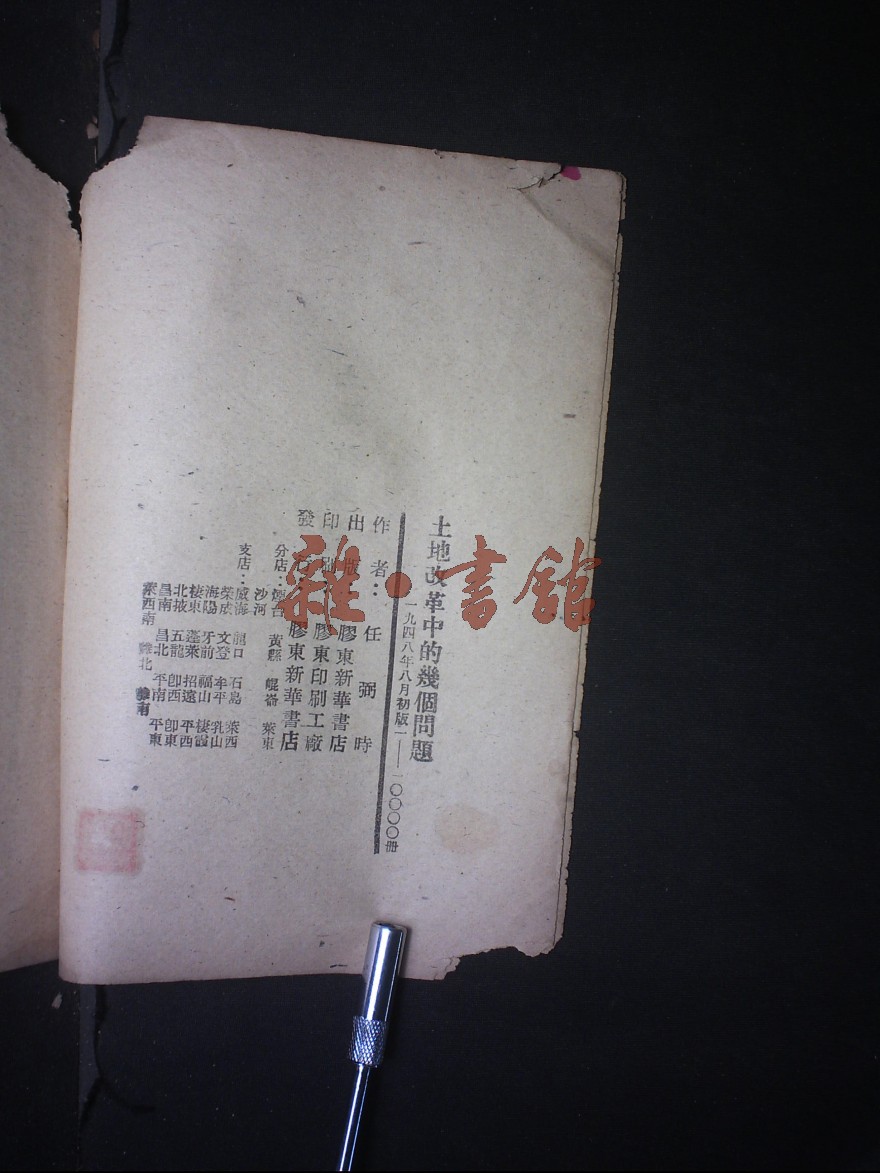 土地改革中的幾個問題
一九四八年八月初版一——一〇〇〇〇冊
作者：任弼時
出版：膠東新華書店
印刷：膠東印刷工廠
發行：膠東新華書店
分店：煙台 黃縣 崐嵛 萊東
沙河
支店：威海 龍口 石島 萊西
榮成 文登 牟平 乳山
海陽 牙前 福山 棲霞
棲東 蓬萊 招遠 平西
北掖 五龍 卽西 卽東
昌南 昌北 平南 平東
萊西南 濰北 濰南
雜·書館